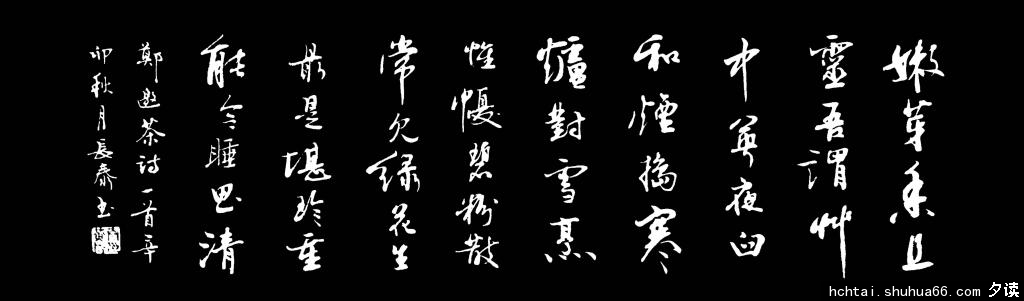 嫩芽香且
靈吾謂艸
中英夜臼
和煙搗寒
爐對雪烹
惟憂碧粉散
常見綠花生
最是堪珍重
能令睡思清
鄭邀茶詩一首辛
卯秋月長泰書
hchtai.shuhua66.com 夕读